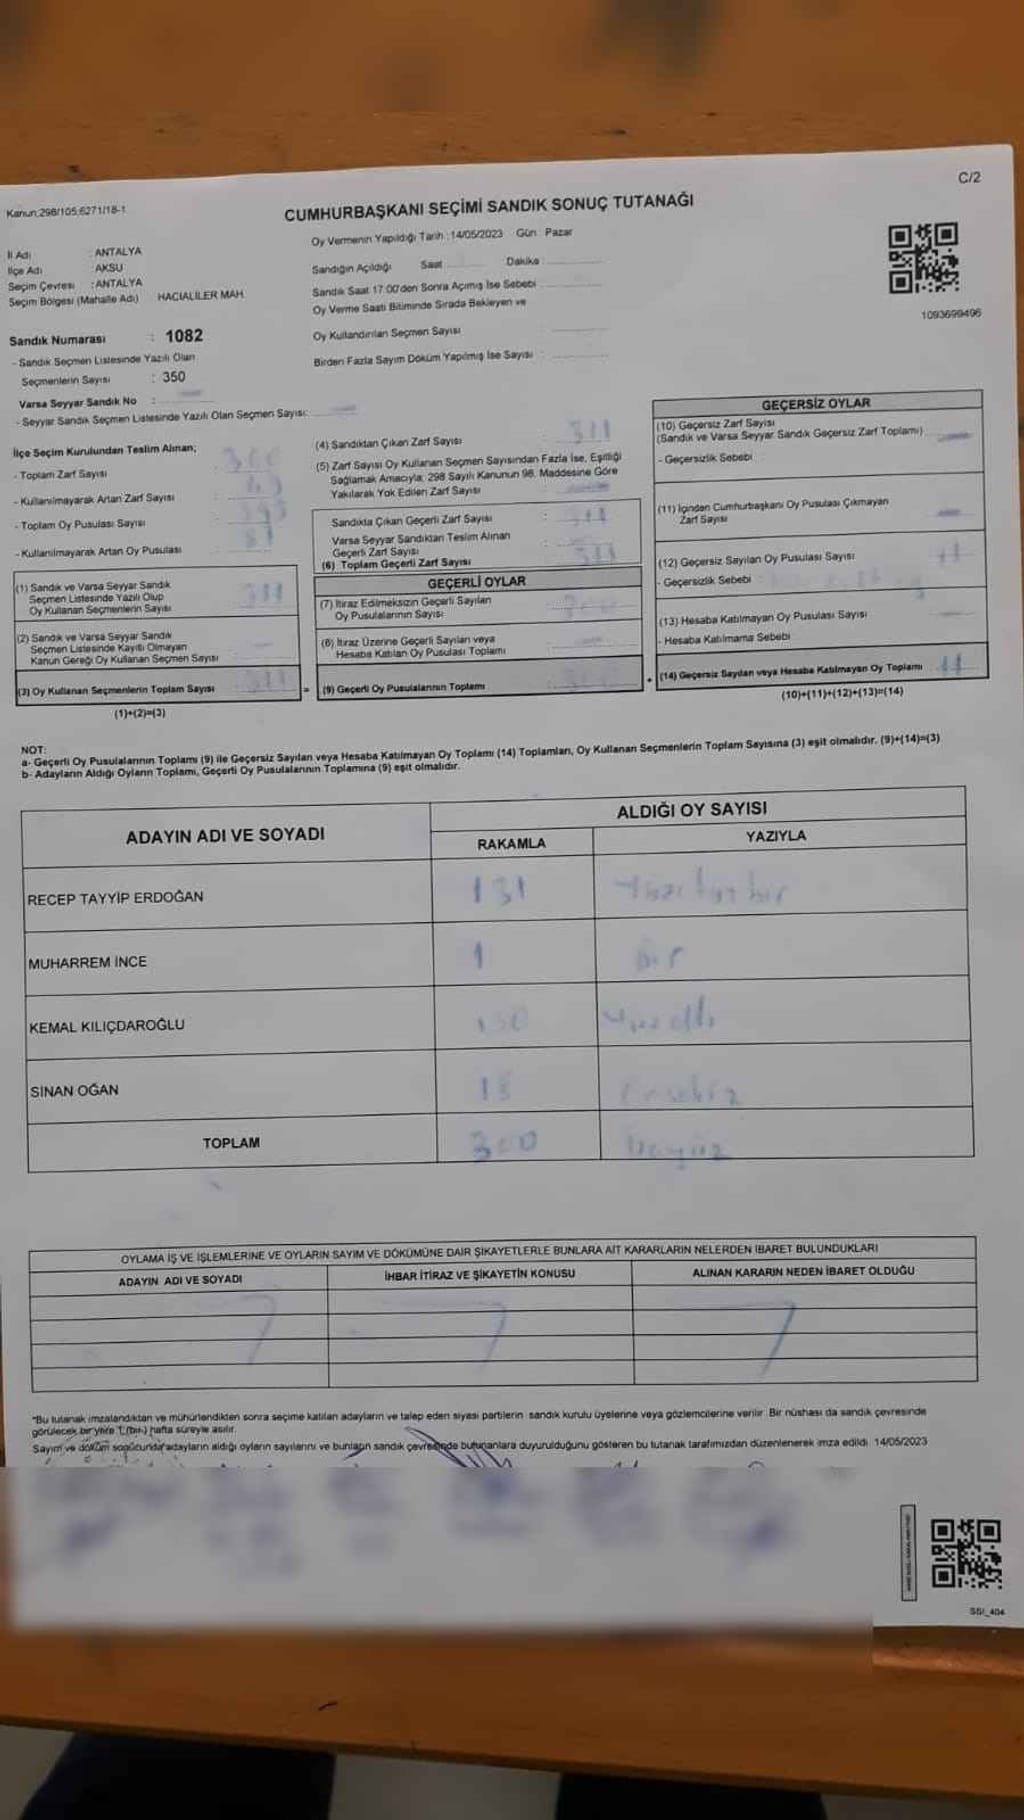 C/2
Kanun;298/105;6271/18-1
CUMHURBAŞKANI SEÇİMİ SANDIK SONUÇ TUTANAĞI
Oy Vermenin Yapıldığı Tarih :14/05/2023 Gün : Pazar
İl Adı : ANTALYA
İlçe Adı : AKSU
Seçim Çevresi : ANTALYA
Seçim Bölgesi (Mahalle Adı) HACIALİLER MAH.
Sandığın Açıldığı Saat Dakika :
Sandık Saat 17:00'den Sonra Açımış İse Sebebi
Oy Verme Saati Bitiminde Sırada Bekleyen ve
Oy Kullandırılan Seçmen Sayısı
Birden Fazla Sayım Döküm Yapılmış İse Sayısı :
1093699496
Sandık Numarası : 1082
- Sandık Seçmen Listesinde Yazılı Olan
Seçmenlerin Sayısı : 350
Varsa Seyyar Sandık No :
- Seyyar Sandık Seçmen Listesinde Yazılı Olan Seçmen Sayısı:
İlçe Seçim Kurulundan Teslim Alınan;
- Toplam Zarf Sayısı :
- Kullanılmayarak Artan Zarf Sayısı :
- Toplam Oy Pusulası Sayısı :
- Kullanılmayarak Artan Oy Pusulası :
(1) Sandık ve Varsa Seyyar Sandık
Seçmen Listesinde Yazılı Olup
Oy Kullanan Seçmenlerin Sayısı : 311
(2) Sandık ve Varsa Seyyar Sandık
Seçmen Listesinde Kayıtlı Olmayan
Kanun Gereği Oy Kullanan Seçmen Sayısı
(3) Oy Kullanan Seçmenlerin Toplam Sayısı : 311
(1)+(2)=(3)
(4) Sandıktan Çıkan Zarf Sayısı : 311
(5) Zarf Sayısı Oy Kullanan Seçmen Sayısından Fazla İse, Eşitliği
Sağlamak Amacıyla; 298 Sayılı Kanunun 98. Maddesine Göre
Yakılarak Yok Edilen Zarf Sayısı :
Sandıkta Çıkan Geçerli Zarf Sayısı : 311
Varsa Seyyar Sandıktan Teslim Alınan
Geçerli Zarf Sayısı
(6) Toplam Geçerli Zarf Sayısı : 311
GEÇERLİ OYLAR
(7) İtiraz Edilmeksizin Geçerli Sayılan
Oy Pusulalarının Sayısı : 300
(8) İtiraz Üzerine Geçerli Sayılan veya
Hesaba Katılan Oy Pusulası Toplamı
=
(9) Geçerli Oy Pusulalarının Toplamı : 300
GEÇERSİZ OYLAR
(10) Geçersiz Zarf Sayısı
(Sandık ve Varsa Seyyar Sandık Geçersiz Zarf Toplamı)
- Geçersizlik Sebebi
(11) İçinden Cumhurbaşkanı Oy Pusulası Çıkmayan
Zarf Sayısı
(12) Geçersiz Sayılan Oy Pusulası Sayısı 11
- Geçersizlik Sebebi
(13) Hesaba Katılmayan Oy Pusulası Sayısı
- Hesaba Katılmama Sebebi
+
(14) Geçersiz Sayılan veya Hesaba Katılmayan Oy Toplamı 11
(10)+(11)+(12)+(13)=(14)
NOT:
a- Geçerli Oy Pusulalarının Toplamı (9) ile Geçersiz Sayılan veya Hesaba Katılmayan Oy Toplamı (14) Toplamları, Oy Kullanan Seçmenlerin Toplam Sayısına (3) eşit olmalıdır. (9)+(14)=(3)
b- Adayların Aldığı Oyların Toplamı, Geçerli Oy Pusulalarının Toplamına (9) eşit olmalıdır.
ADAYIN ADI VE SOYADI
ALDIĞI OY SAYISI
RAKAMLA YAZIYLA
RECEP TAYYİP ERDOĞAN 131 Yüzotuzbir
MUHARREM İNCE 1 Bir
KEMAL KILIÇDAROĞLU 150 Yüzelli
SİNAN OĞAN 18 Onsekiz
TOPLAM 300 Üçyüz
OYLAMA İŞ VE İŞLEMLERİNE VE OYLARIN SAYIM VE DÖKÜMÜNE DAİR ŞİKAYETLERLE BUNLARA AİT KARARLARIN NELERDEN İBARET BULUNDUKLARI
ADAYIN ADI VE SOYADI İHBAR İTİRAZ VE ŞİKAYETİN KONUSU ALINAN KARARIN NEDEN İBARET OLDUĞU
*Bu tutanak imzalandıktan ve mühürlendikten sonra seçime katılan adayların ve talep eden siyasi partilerin sandık kurulu üyelerine veya gözlemcilerine verilir. Bir nüshası da sandık çevresinde
görülecek bir yere 1 (bir) hafta süreyle asılır.
Sayım ve döküm sonucunda adayların aldığı oyların sayılarını ve bunların sandık çevresinde bulunanlara duyurulduğunu gösteren bu tutanak tarafımızdan düzenlenerek imza edildi. 14/05/2023
SSI_404